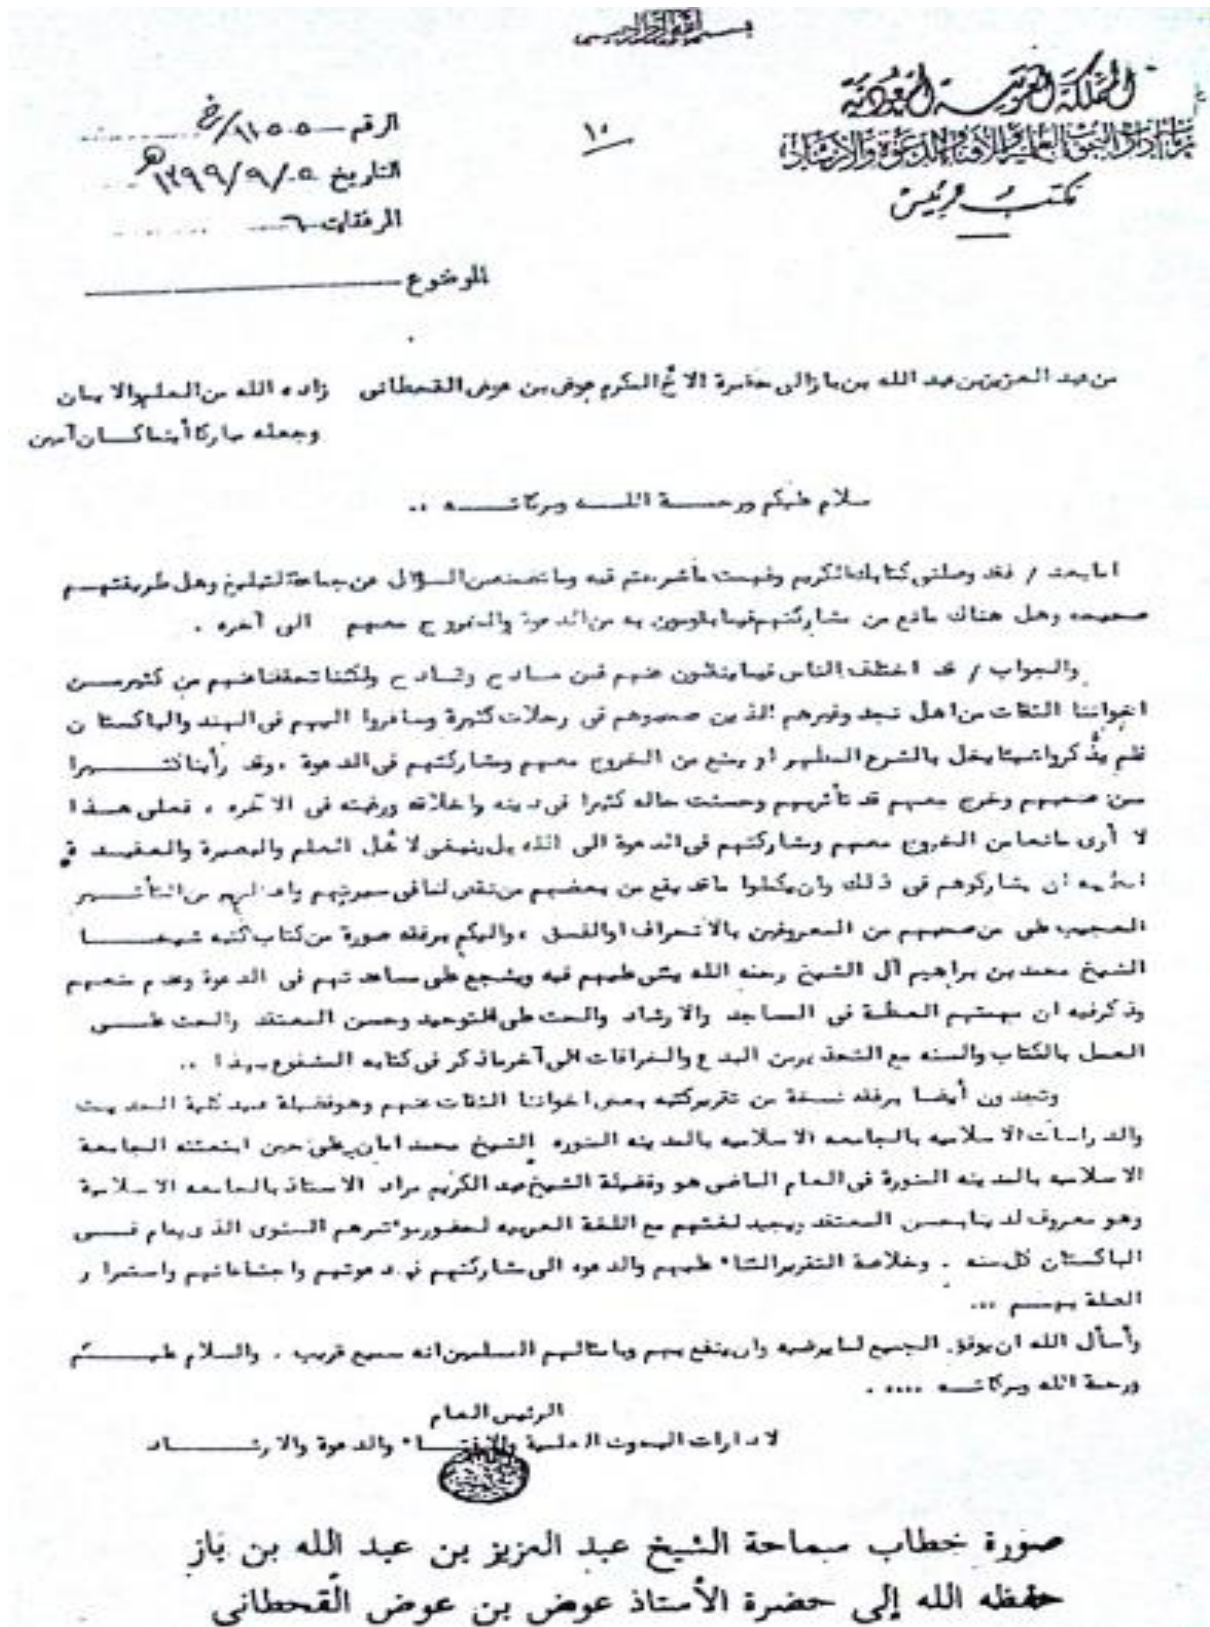 بسم الله الرحمن الرحيم
المملكة العربية السعودية
إدارات البحوث العلمية والافتاء والدعوة والارشاد
مكتب الرئيس
١٠
الرقم
التاريخ ١٣٩٩/٩/٠٥هـ
المرفقات ٦
الموضوع
من عبد العزيز بن عبد الله بن باز الى حضرة الأخ المكرم عوض بن عوض القحطانى زاده الله من العلم والايمان
وجعله مباركا أينما كان آمين
سلام عليكم ورحمة الله وبركاته ..
اما بعد / فقد وصلنى كتابك الكريم وفهمت ما شرحتم فيه وما تضمن من السؤال عن جماعة التبليغ وهل طريقتهم
صحيحه وهل هناك مانع من مشاركتهم فيما يقومون به من الدعوة والخروج معهم الى آخره .
والجواب / قد اختلف الناس فيما ينقلون عنهم فمن مادح وقادح ولكننا تحققنا عنهم من كثير من
اخواننا الثقات من اهل نجد وغيرهم الذين صحبوهم فى رحلات كثيرة وسافروا اليهم فى الهند والباكستان
فلم يذكروا شيئا يخل بالشرع المطهر او يمنع من الخروج معهم ومشاركتهم فى الدعوة ، وقد رأينا كثيرا
ممن صحبهم وخرج معهم قد تأثر بهم وحسنت حاله كثيرا فى دينه واخلاقه ورغبته فى الآخره ، فعلى هذا
لا أرى مانعا من الخروج معهم ومشاركتهم فى الدعوة الى الله بل ينبغى لأهل العلم والبصيرة والعقيدة
ان يشاركوهم فى ذلك وان يكملوا ما قد يقع من بعضهم من نقص لما فى سيرتهم من التأثير
العجيب على من صحبهم من المعروفين بالانحراف او الفسق ، واليكم برفقه صورة من كتاب كتبه شيخنا
الشيخ محمد بن براهيم آل الشيخ رحمه الله يثنى عليهم فيه ويشجع على مساعدتهم فى الدعوة وعدم منعهم
وذكر فيه ان مهمتهم العظة فى المساجد والارشاد والحث على التوحيد وحسن المعتقد والحث على
العمل بالكتاب والسنه مع التحذير من البدع والخرافات الى آخر ما ذكر فى كتابه المشفوع بهذا ..
وتجدون أيضا برفقه نسخة من تقرير كتبه بعض اخواننا الثقات عنهم وهو فضيلة عميد كلية الحديث
والدراسات الاسلاميه بالجامعه الاسلاميه بالمدينه المنوره الشيخ محمد امان بن على حين ابتعثته الجامعة
الاسلاميه بالمدينه المنورة فى العام الماضى هو وفضيلة الشيخ عبد الكريم مراد الاستاذ بالجامعه الاسلامية
وهو معروف لدينا بحسن المعتقد ويجيد لغتهم مع اللغة العربيه لحضور مؤتمرهم السنوى الذى يقام فى
الباكستان كل سنه . وخلاصة التقرير الثناء عليهم والدعوه الى مشاركتهم فى دعوتهم واجتماعاتهم واستمرار
الصلة بهم ...
وأسأل الله ان يوفق الجميع لما يرضيه وان ينفع بهم وبامثالهم المسلمين انه سميع قريب . والسلام عليكم
ورحمة الله وبركاته ....
الرئيس العام
لادارات البحوث العلمية والافتاء والدعوة والارشاد
صورة خطاب سماحة الشيخ عبد العزيز بن عبد الله بن باز
حفظه الله إلى حضرة الأستاذ عوض بن عوض القحطانى